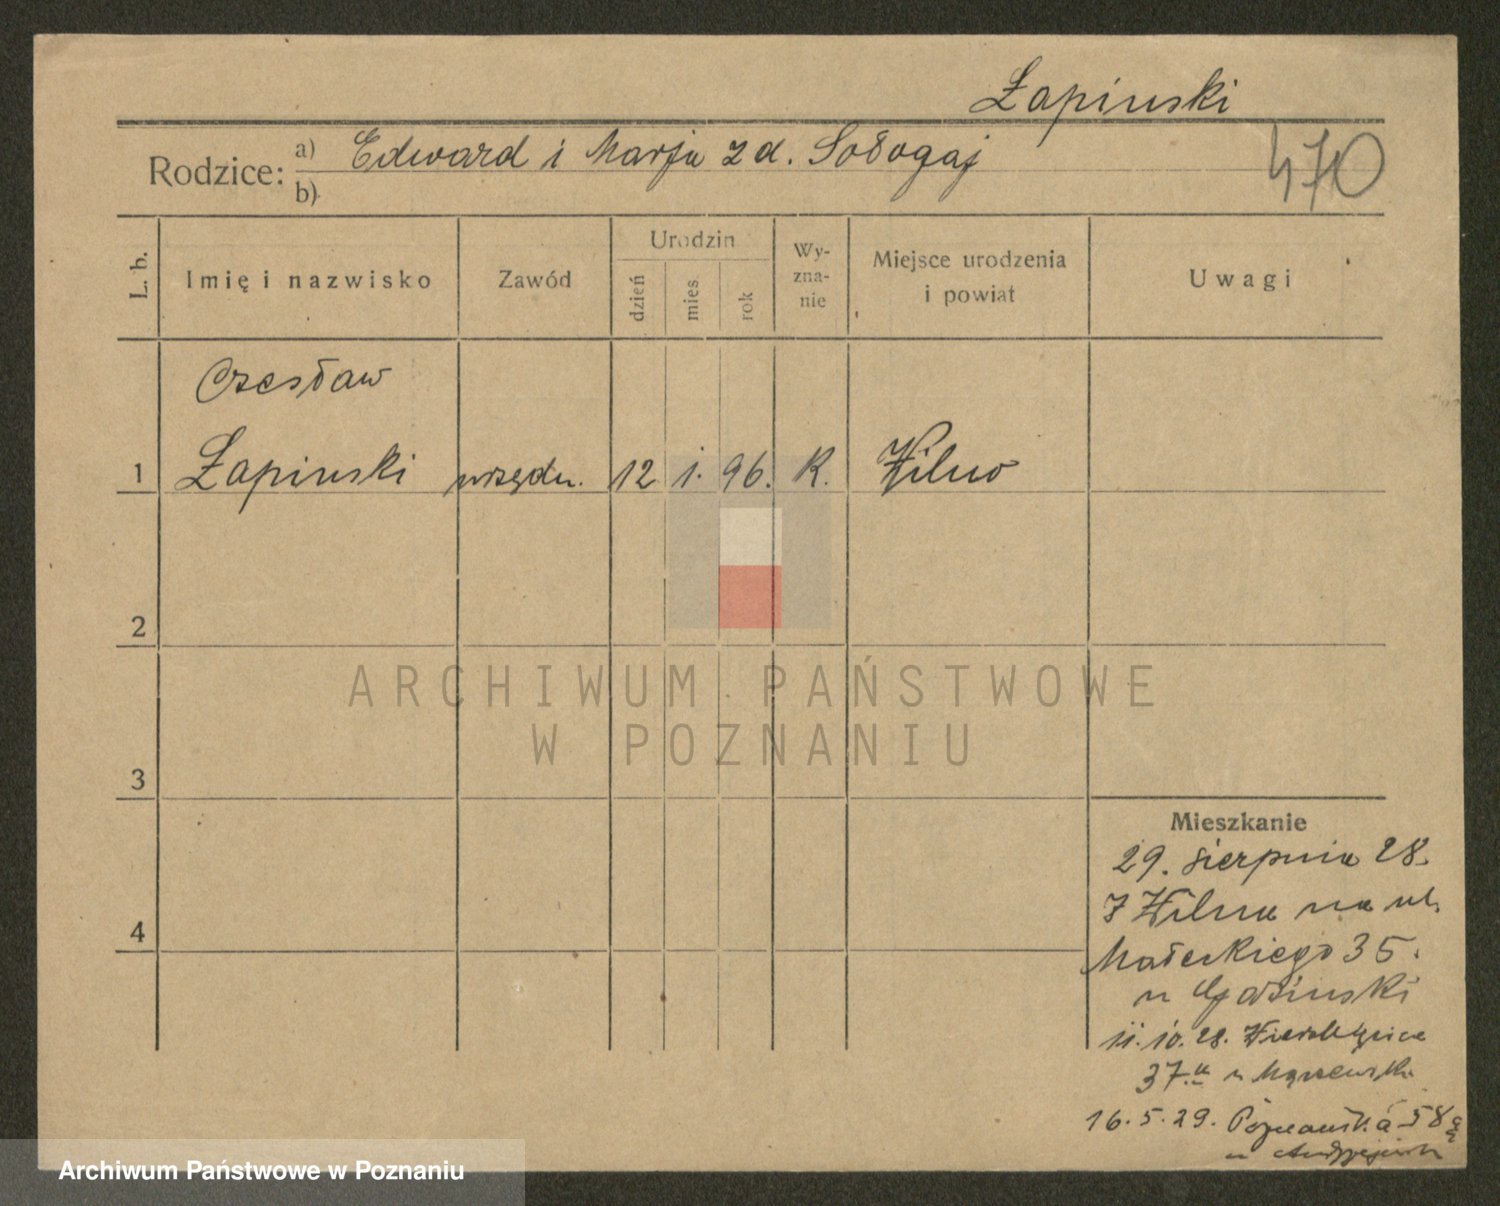 Łapiński
Rodzice: a) Edward i Marja z d. Sołogaj
b)
470
L. b.
Imię i nazwisko
Zawód
Urodzin
dzień
mies.
rok
Wy-
zna-
nie
Miejsce urodzenia
i powiat
Uwagi
Czesław
1 Łapiński urzędn. 12 1. 96. K. Wilno
2
3
4
Mieszkanie
29. sierpnia 28.
z Wilna na ul.
Małeckiego 35.
u
11. 10. 28.
37.a u
16. 5. 29. Poznańska 58
u
ARCHIWUM PAŃSTWOWE
W POZNANIU
Archiwum Państwowe w Poznaniu